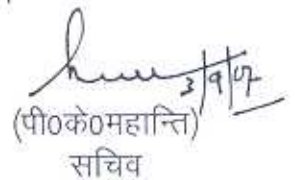 3/9/07
(पी0के0महान्ति)
सचिव